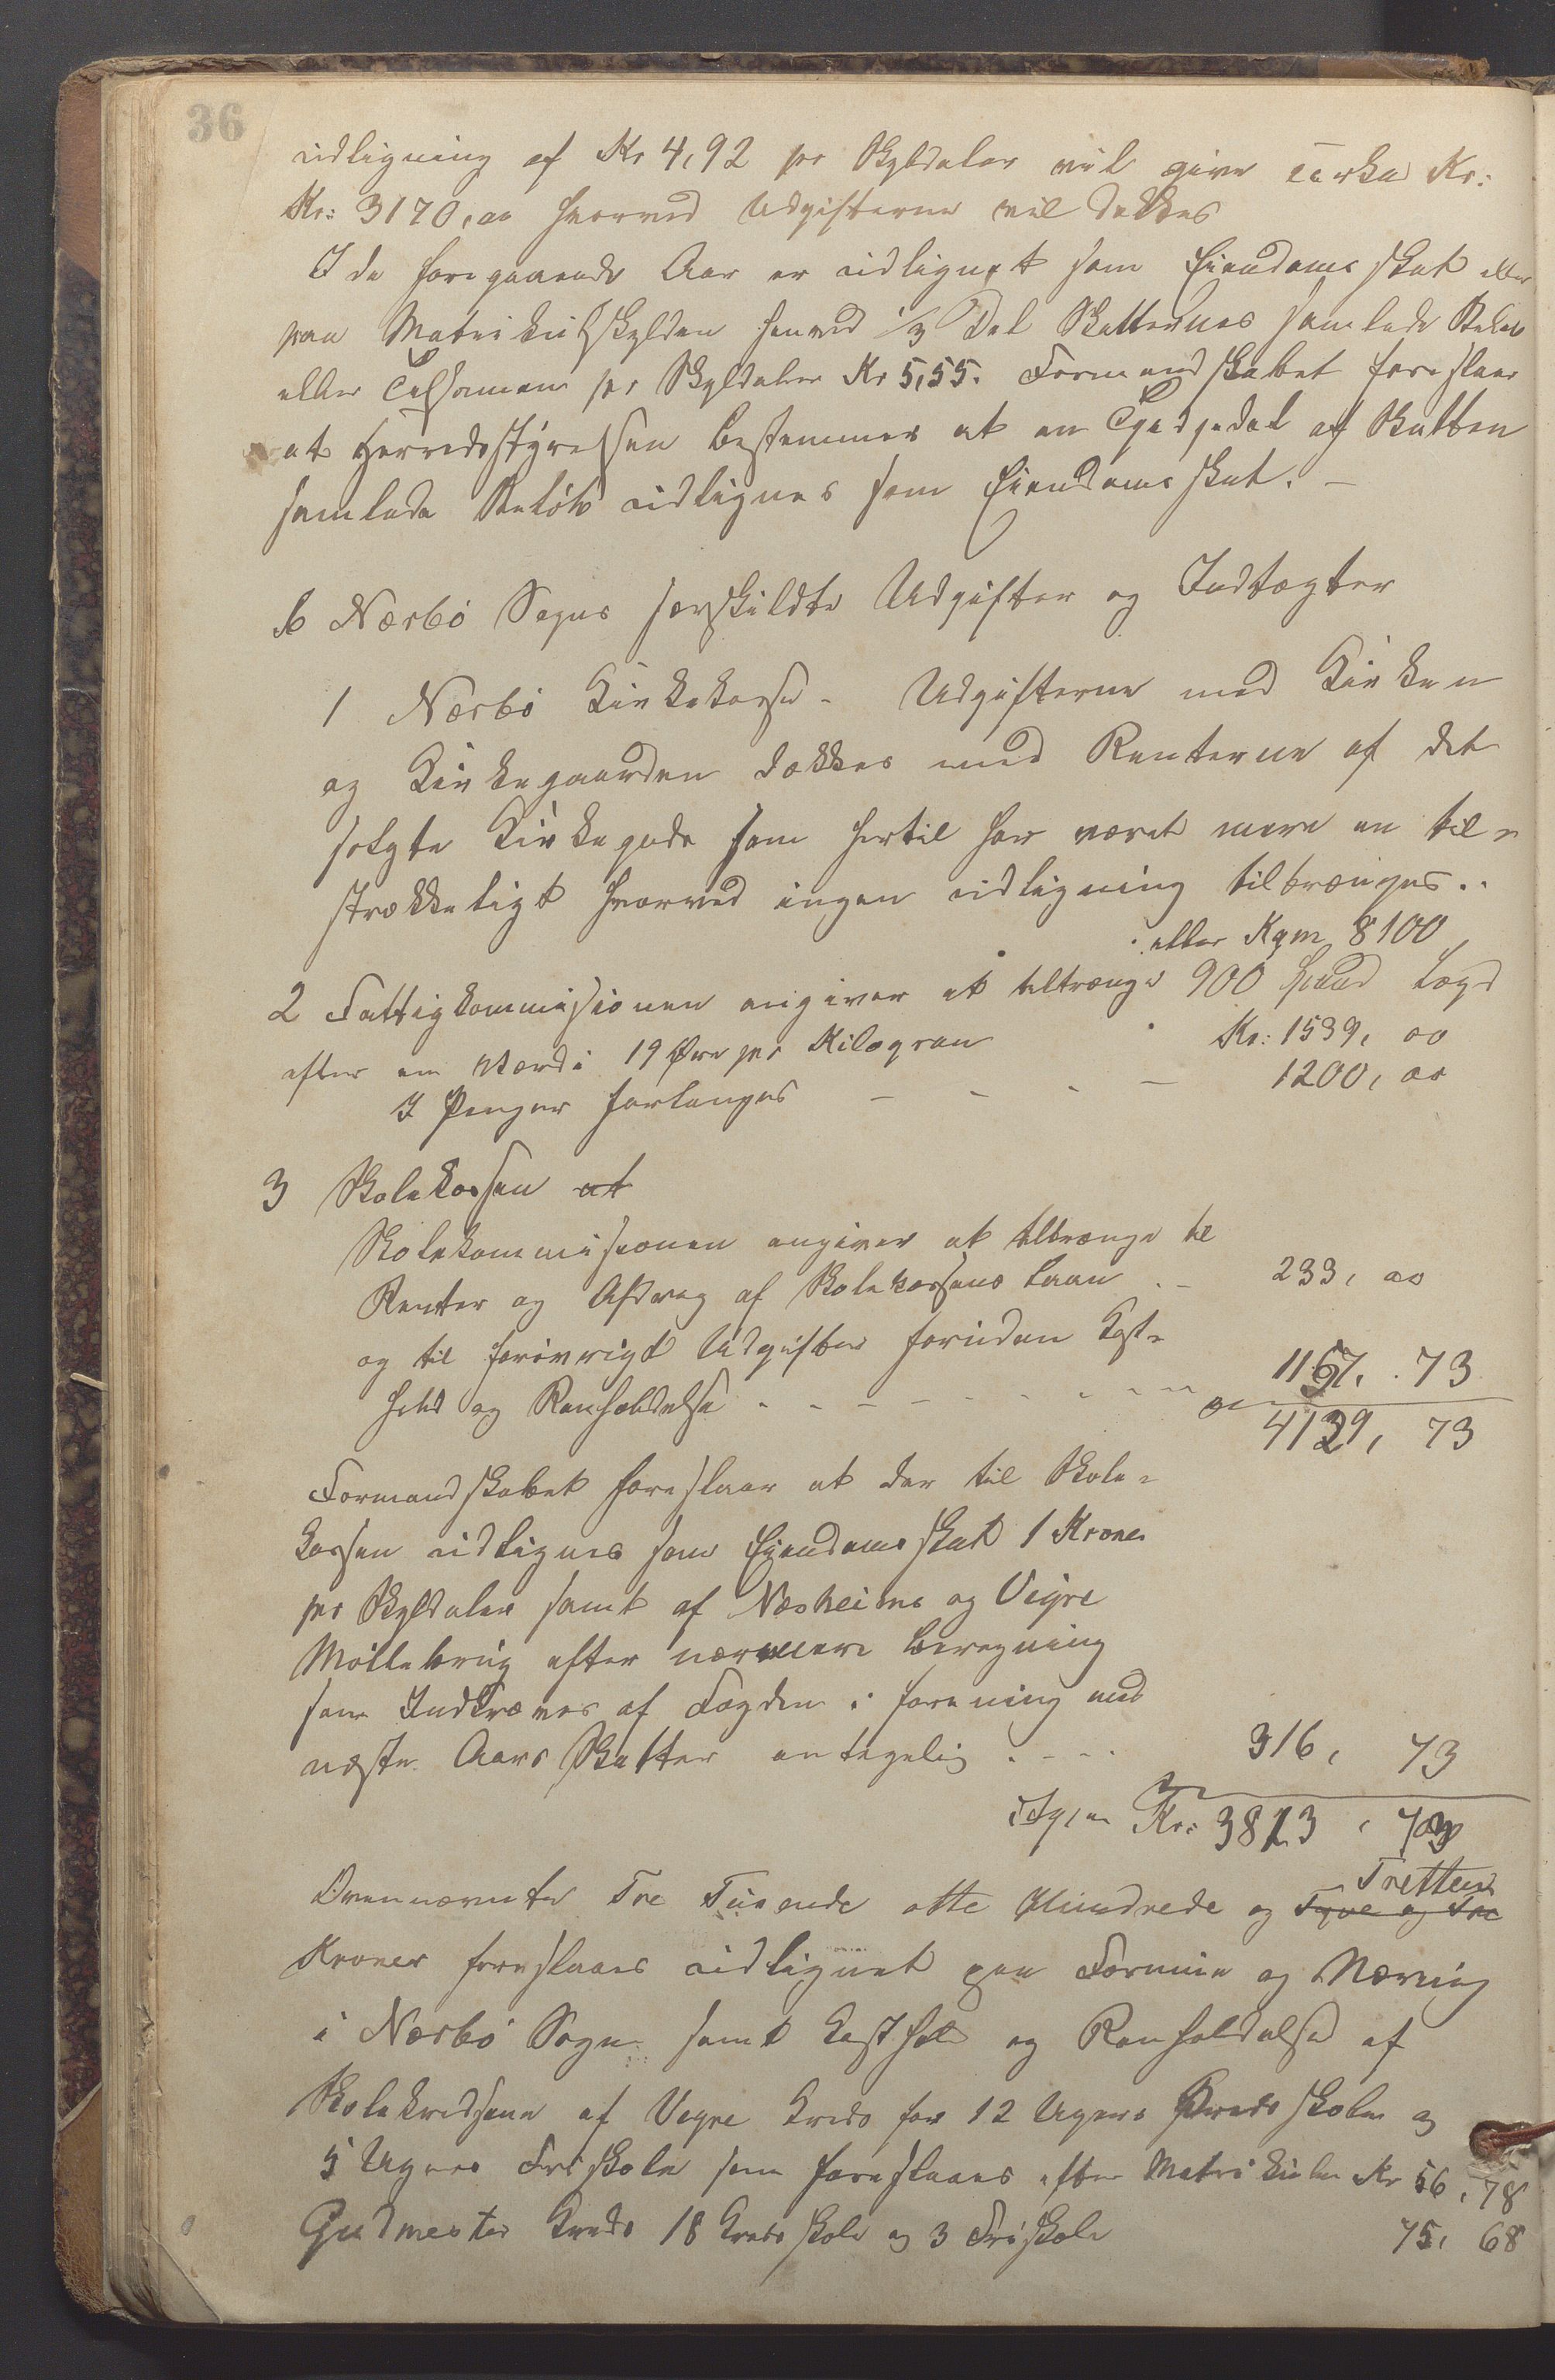 36
udligning af Kr 4,92 pr Skyldaler vil give cirka Kr:
Kr: 3170,00 hvorved Udgifterne vil dækkes
I de foregaaende Aar er udlignet som Eiendomsskat eller
paa Matrikulskylden henved 1/3 Del Skatternes samlede Beløb
eller Tilsammen pr Skyldaler Kr 5,55. Formandskabet foreslaar
at Herredsstyrelsen bestemmer at en Tredjedel af Skatten
samlede Beløb udlignes som Eiendomsskat. –
b Nærbø Sogns særskildte Udgifter og Indtægter
1 Nærbø Kirkekasse - Udgifterne med Kirken
og Kirkegaarden dækkes med Renterne af det
solgte Kirkegods som hertil har været mere en til=
strækkeligt hvorved ingen udligning tiltrænges..
eller Kgm 8100
2 Fattigkommisionen angiver at tiltrænge 900 Hund Lægd
efter en Værdi 19 Øre pr Kilogram Kr: 1539, 00
I Penger forlanges – – – – 1200, 00
3 Skolekassen at
Skolekommisionen angiver at tiltrænge til
Renter og Afdrag af Skolekassens Laan . – 233, 00
og til forøvrigt Udgifter foruden Kost=
hold og Renholdelse . - - - - - - 1157, . 73
4129, 73
Formandskabet foreslaar at der til Skole=
kassen udlignes som Eiendomsskat 1 Krone
pr Skyldaler samt af Næsheims og Vigre
Møllebrug efter nærmere beregning
som Indkræves af Fogden i forening med
næste Aars Skatter antagelig . - - . 316, 73
Kr: 3813, 00
Tretten
Ovennævnte Tre Tusende otte Hundrede og Tyve og Tre
Kroner foreslaaes udlignet paa Formue og Næring
i Nærbø Sogn samt Kosthold og Renholdelse af
Skolekredsene af Vigre Kreds for 12 Ugers Kredsskole og
5 Ugers Friskole som foreslaaes efter Matrikulen Kr 56, 78
Gudmestad Kreds 18 Kredsskole og 3 Friskole 75, 68